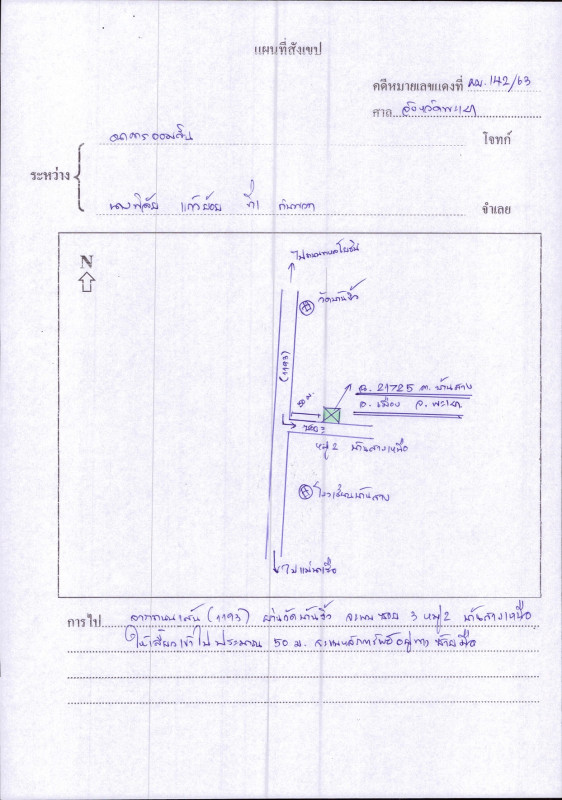 แผนที่สังเขป
คดีหมายเลขแดงที่ ผบ.142/63
ศาล จังหวัดพะเยา
ธนาคารออมสิน โจทก์
ระหว่าง
ที่1 กับพวก จำเลย
N
ไปถนนพหลโยธิน
วัดบ้านงิ้ว
(1193)
50 ม.
ฉ. 21725 ต. บ้านสาง
อ. เมือง จ. พะเยา
ซอย 3
หมู่ 2 บ้านสางเหนือ
โรงเรียนบ้านสาง
ไปแม่นาเรือ
การไป จากถนนเส้น (1193) ผ่านวัดบ้านงิ้ว จะพบ ซอย 3 หมู่ 2 บ้านสางเหนือ
ให้เลี้ยวเข้าไป ประมาณ 50 ม. จะพบหลักทรัพย์อยู่ทาง ซ้ายมือ